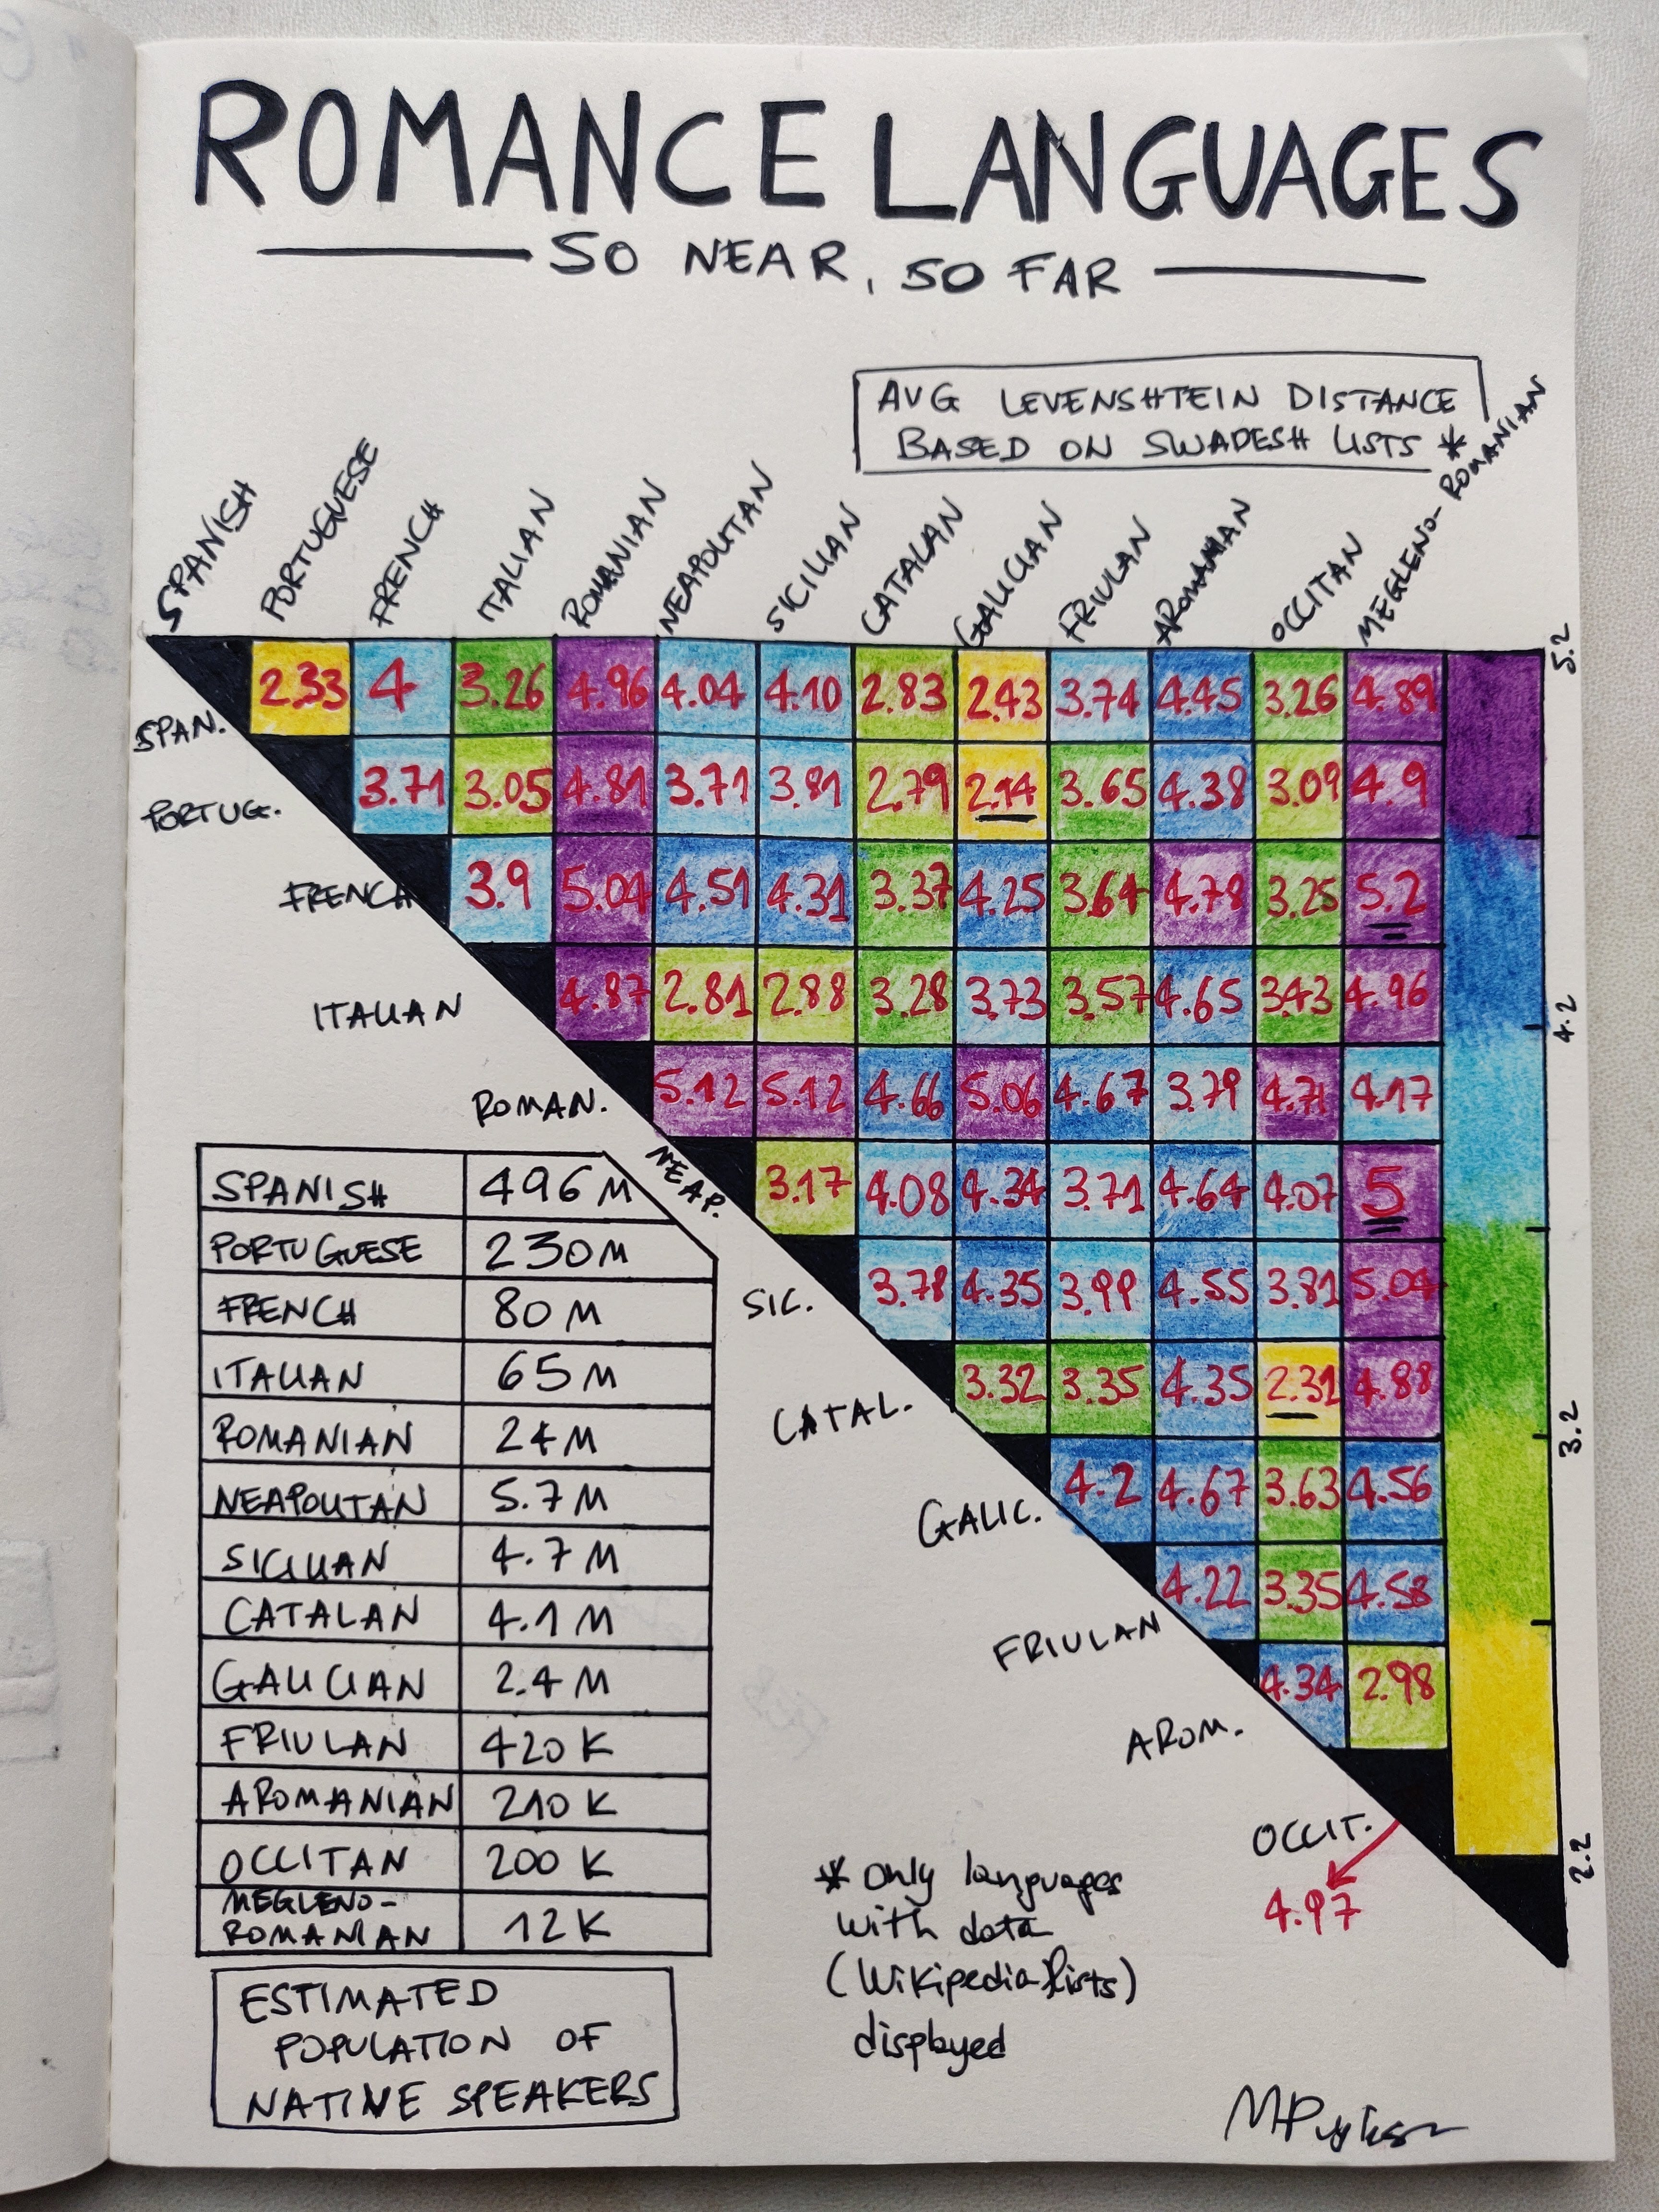 ROMANCE LANGUAGES
SO NEAR, SO FAR
AVG LEVENSHTEIN DISTANCE
BASED ON SWADESH LISTS *
SPANISH PORTUGUESE FRENCH ITALIAN ROMANIAN NEAPOLITAN SICILIAN CATALAN GALICIAN FRIULAN AROMANIAN OCCITAN MEGLENO-ROMANIAN
5.2
SPAN. 2.33 4 3.26 4.96 4.04 4.10 2.83 2.43 3.74 4.45 3.26 4.89
PORTUG. 3.71 3.05 4.81 3.71 3.81 2.79 2.14 3.65 4.38 3.09 4.9
FRENCH 3.9 5.04 4.51 4.31 3.37 4.25 3.64 4.78 3.25 5.2
ITALIAN 4.87 2.81 2.88 3.28 3.73 3.57 4.65 3.43 4.96
4.2
ROMAN. 5.12 5.12 4.66 5.06 4.67 3.79 4.71 4.17
NEAP. 3.17 4.08 4.34 3.71 4.64 4.07 5
SIC. 3.78 4.35 3.99 4.55 3.81 5.04
CATAL. 3.32 3.35 4.35 2.31 4.88
3.2
GALIC. 4.2 4.67 3.63 4.56
FRIULAN 4.22 3.35 4.58
AROM. 4.34 2.98
OCCIT.
4.97
2.2
SPANISH 496 M
PORTUGUESE 230 M
FRENCH 80 M
ITALIAN 65 M
ROMANIAN 24 M
NEAPOLITAN 5.7 M
SICILIAN 4.7 M
CATALAN 4.1 M
GALICIAN 2.4 M
FRIULAN 420 K
AROMANIAN 210 K
OCCITAN 200 K
MEGLENO-
ROMANIAN 12 K
ESTIMATED
POPULATION OF
NATIVE SPEAKERS
* only languages
with data
(Wikipedia lists)
displayed